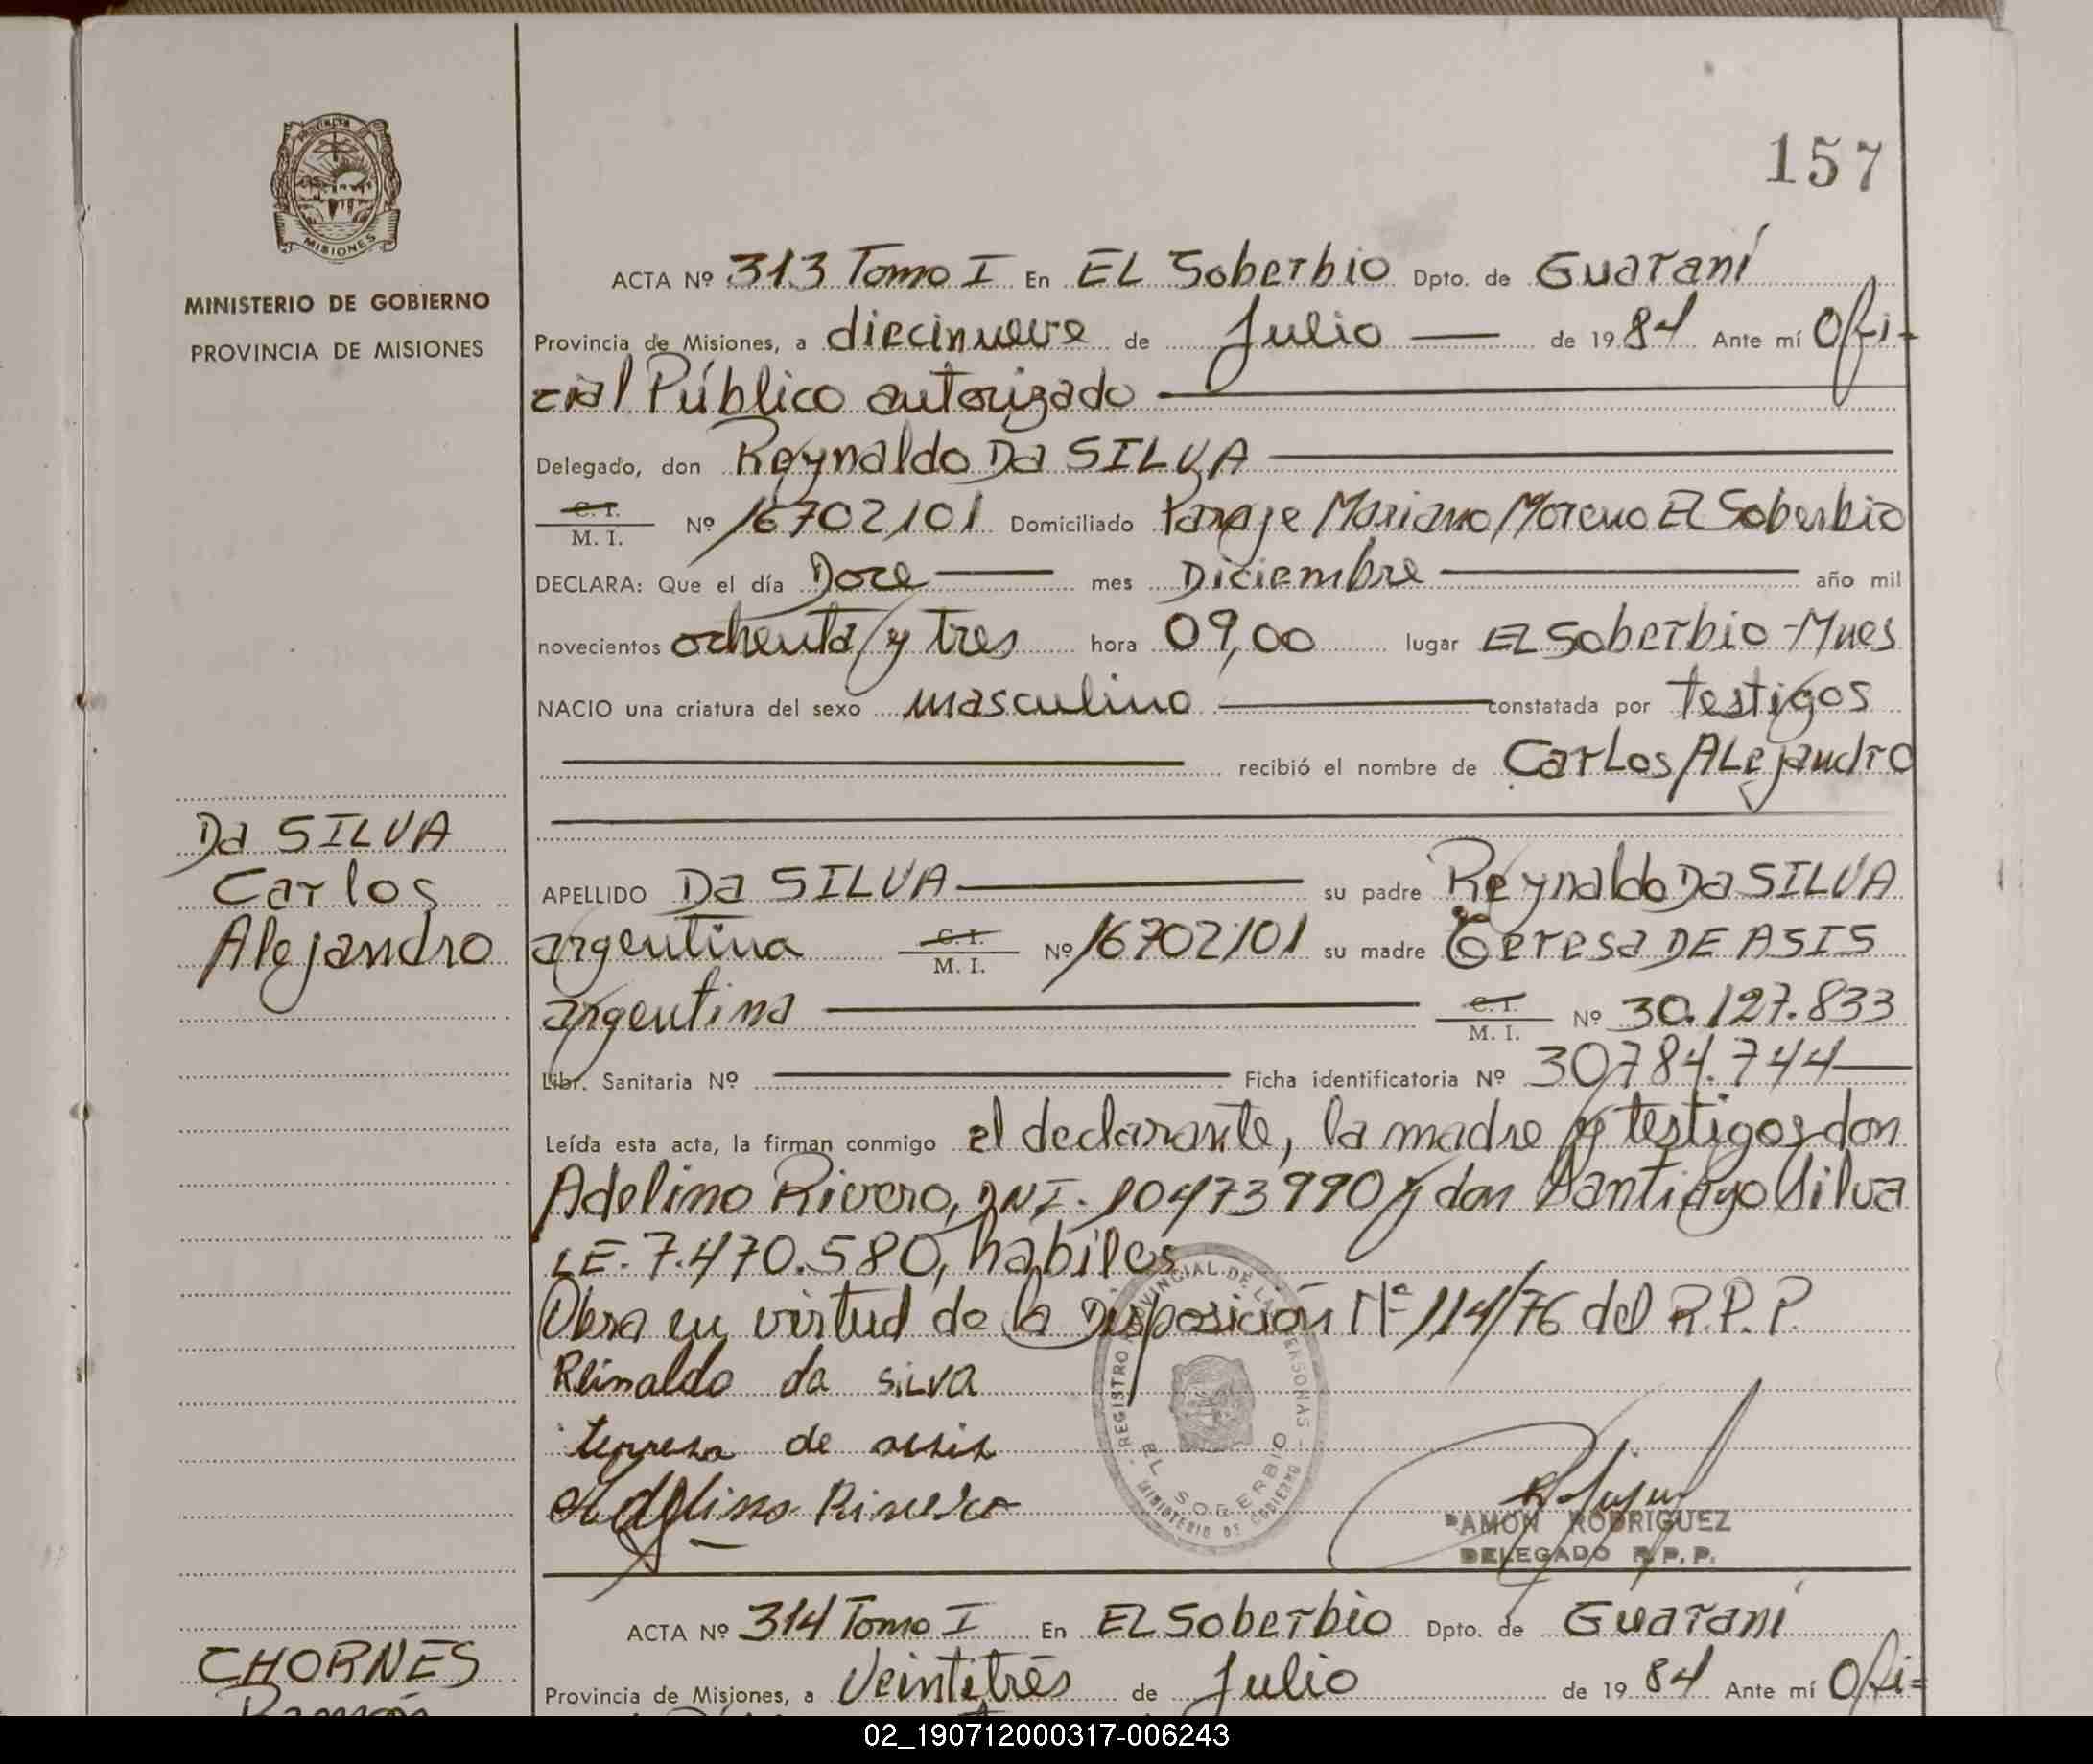 157
MINISTERIO DE GOBIERNO
PROVINCIA DE MISIONES
ACTA Nº 313 Tomo I En EL Soberbio Dpto. de Guaraní
Provincia de Misiones, a diecinueve de Julio — de 1984 Ante mí Ofi-
cial Público autorizado
Delegado, don Reynaldo Da SILVA
C. I. M. I. Nº 16702101 Domiciliado Paraje Mariano Moreno El Soberbio
DECLARA: Que el día Doce mes Diciembre año mil
novecientos ochenta y tres hora 09,00 lugar EL Soberbio-Mnes
NACIO una criatura del sexo masculino constatada por testigos
recibió el nombre de Carlos ALejandro
Da SILVA
Carlos
Alejandro
APELLIDO Da SILVA su padre Reynaldo Da SILVA
argentina C. I. M. I. Nº 16702101 su madre Teresa DE ASIS
argentina C. I. M. I. Nº 30.127.833
Libr. Sanitaria Nº Ficha identificatoria Nº 30784.744
Leída esta acta, la firman conmigo el declarante, la madre y testigos don
Adelino Rivero, DNI. 10473990 y don Santiago Silva
LE. 7.470.580, habiles
Obra en virtud de la Disposición Nº 114/76 del R.P.P.
Reinaldo da siLva
terresa de assis
Adelino Rivero
REGISTRO PROVINCIAL DE LAS PERSONAS
EL SOBERBIO
MINISTERIO DE GOBIERNO
RAMON RODRIGUEZ
DELEGADO R.P.P.
ACTA Nº 314 Tomo I En EL Soberbio Dpto. de Guaraní
Provincia de Misiones, a Veintitrés de Julio de 1984 Ante mí Ofi-
CHORNES
Ramón
02_190712000317-006243